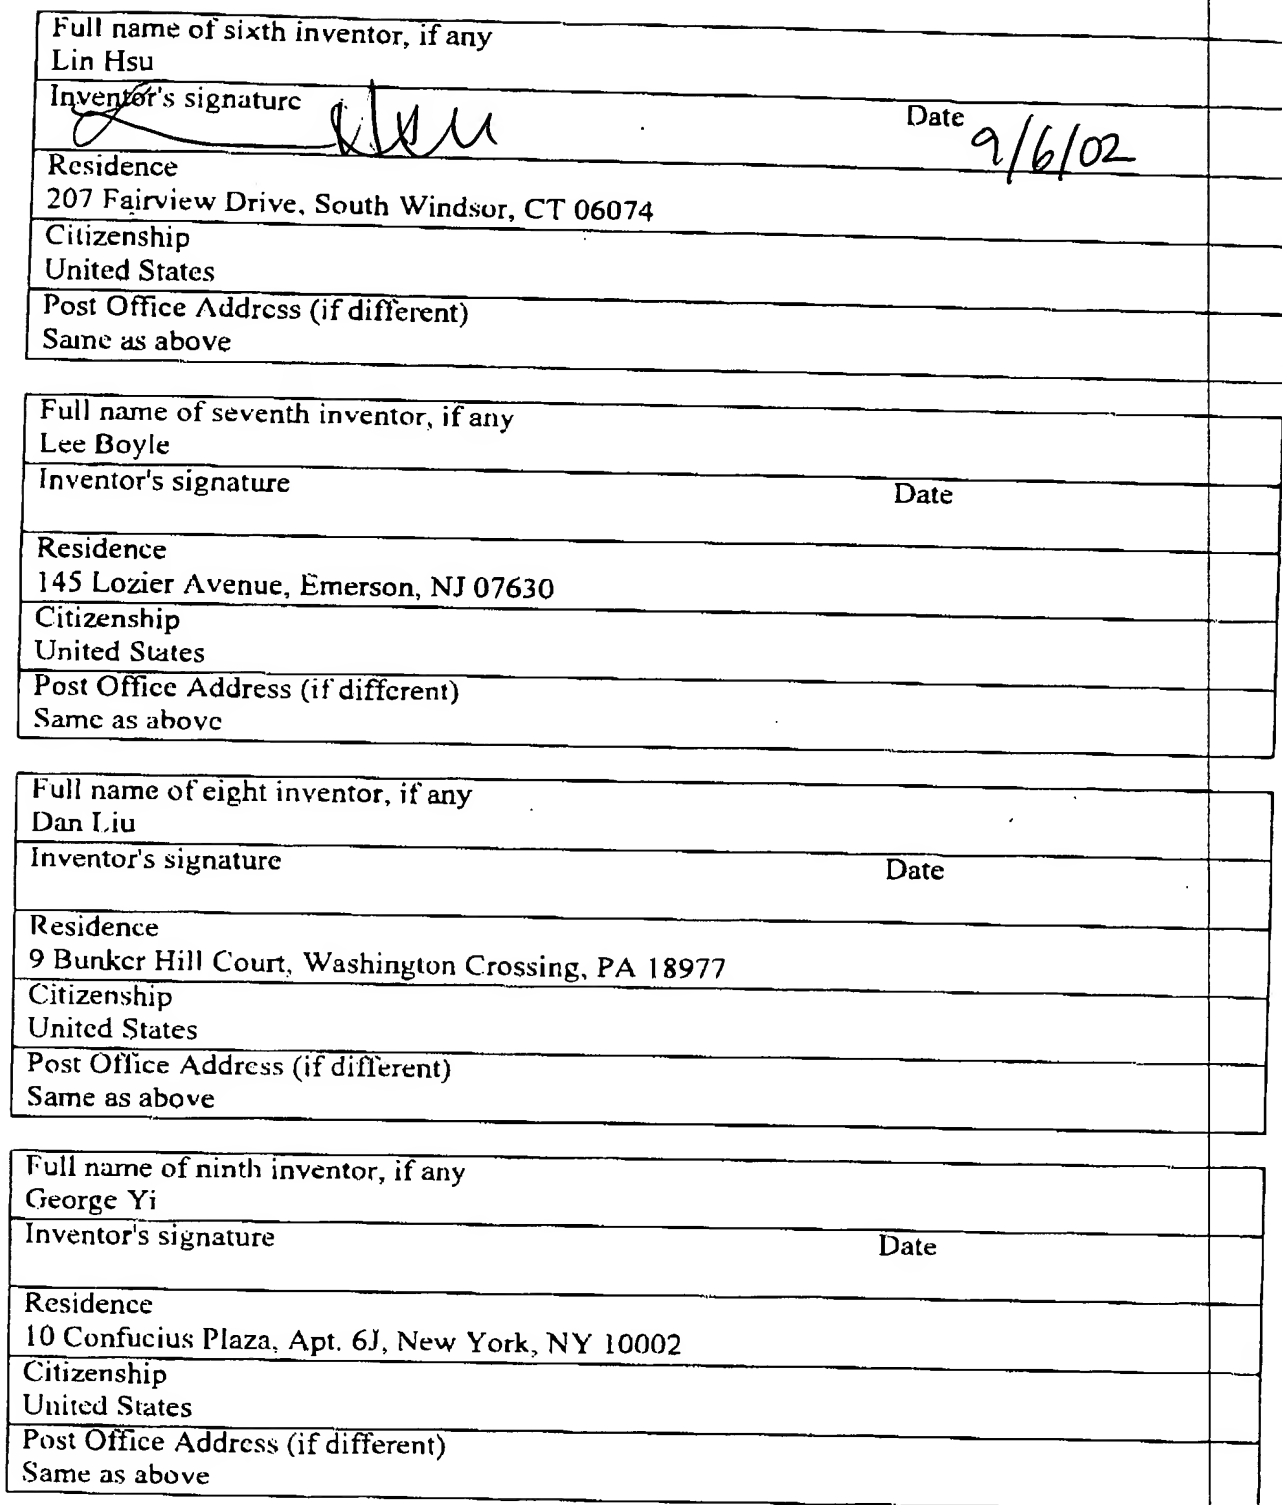 Full name of sixth inventor, if any
Lin Hsu
Inventor's signature Date
L Hsu 9/6/02
Residence
207 Fairview Drive, South Windsor, CT 06074
Citizenship
United States
Post Office Address (if different)
Same as above
Full name of seventh inventor, if any
Lee Boyle
Inventor's signature Date
Residence
145 Lozier Avenue, Emerson, NJ 07630
Citizenship
United States
Post Office Address (if different)
Same as above
Full name of eight inventor, if any
Dan Liu
Inventor's signature Date
Residence
9 Bunker Hill Court, Washington Crossing, PA 18977
Citizenship
United States
Post Office Address (if different)
Same as above
Full name of ninth inventor, if any
George Yi
Inventor's signature Date
Residence
10 Confucius Plaza, Apt. 6J, New York, NY 10002
Citizenship
United States
Post Office Address (if different)
Same as above